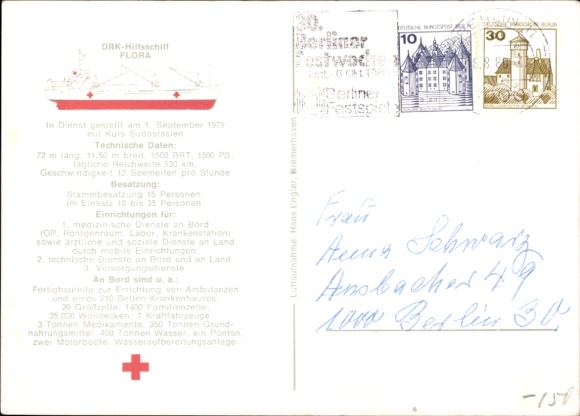 DRK-Hilfsschiff
FLORA
In Dienst gestellt am 1. September 1979
mit Kurs Südostasien
Technische Daten:
72 m lang, 11,50 m breit, 1500 BRT, 1500 PS,
tägliche Reichweite 530 km,
Geschwindigkeit 12 Seemeilen pro Stunde
Besatzung:
Stammbesatzung 15 Personen,
im Einsatz 16 bis 35 Personen
Einrichtungen für:
1. medizinische Dienste an Bord
(OP, Röntgenraum, Labor, Krankenstation)
sowie ärztliche und soziale Dienste an Land
durch mobile Einrichtungen
2. technische Dienste an Bord und an Land
3. Versorgungsdienste
An Bord sind u. a.:
Fertigbauteile zur Errichtung von Ambulanzen
und eines 210-Betten-Krankenhauses
20 Großzelte, 1400 Familienzelte,
25.000 Wolldecken, 7 Kraftfahrzeuge,
3 Tonnen Medikamente, 350 Tonnen Grund-
nahrungsmittel, 400 Tonnen Wasser, ein Ponton,
zwei Motorboote, Wasseraufbereitungsanlage
Luftaufnahme: Hans Engler, Bremerhaven
30.
Berliner
Festwochen
Berliner
Festspiele
10 DEUTSCHE BUNDESPOST BERLIN
30 DEUTSCHE BUNDESPOST BERLIN
Frau
Anna Schwarz
Ansbacher 49
1000 Berlin 30.
-150